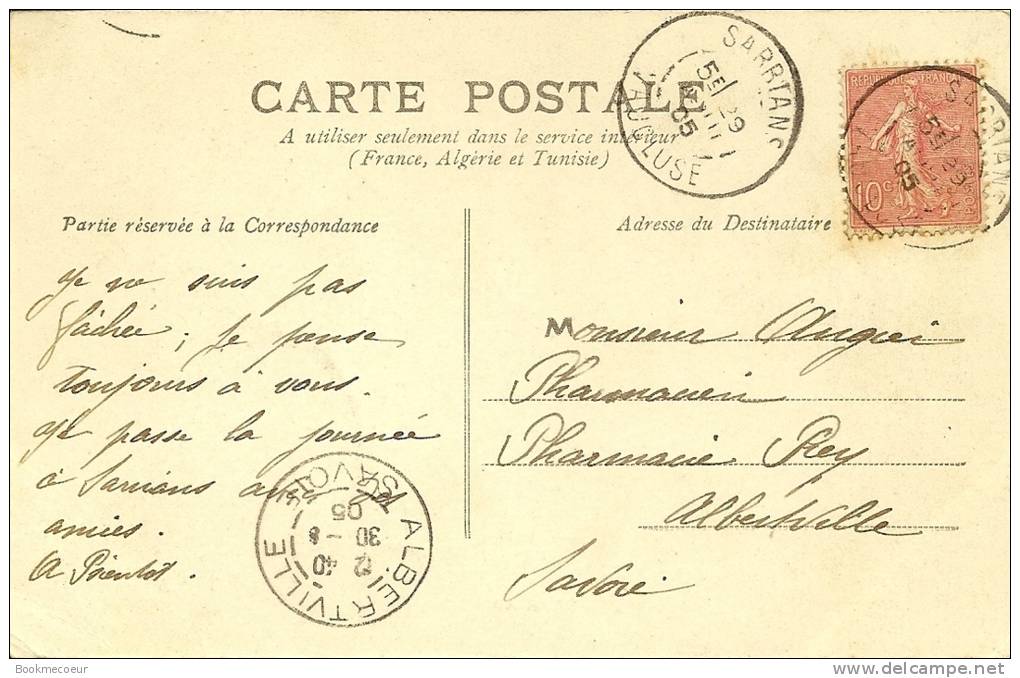 CARTE POSTALE
A utiliser seulement dans le service intérieur
(France, Algérie et Tunisie)
SARRIANS
5E 29
05
VAUCLUSE
REPUBLIQUE FRANCAISE
10c
SARRIANS
5E 29
05
Partie réservée à la Correspondance
Je ne suis pas
fâchée ; Je pense
toujours à vous.
Je passe la journée
à Sarrians avec des
amies.
A Bientôt.
Adresse du Destinataire
Monsieur
Pharmacien
Pharmacie Rey
Albertville
Savoie
ALBERTVILLE
12 40
30 - 8
05
SAVOIE
Bookmecoeur
delcampe.net